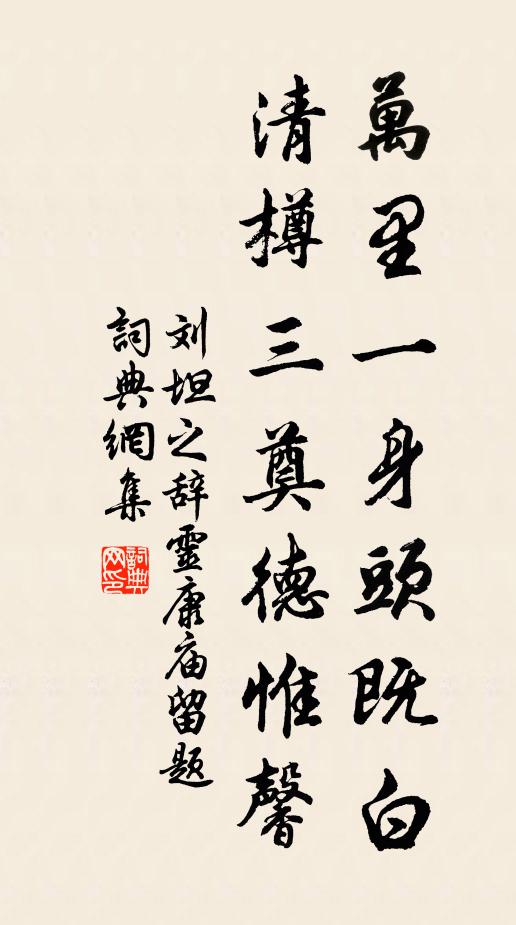 萬里一身頭既白
清樽三奠德惟馨
刘坦之辞靈康庙留题
詞典網集
詞典网印